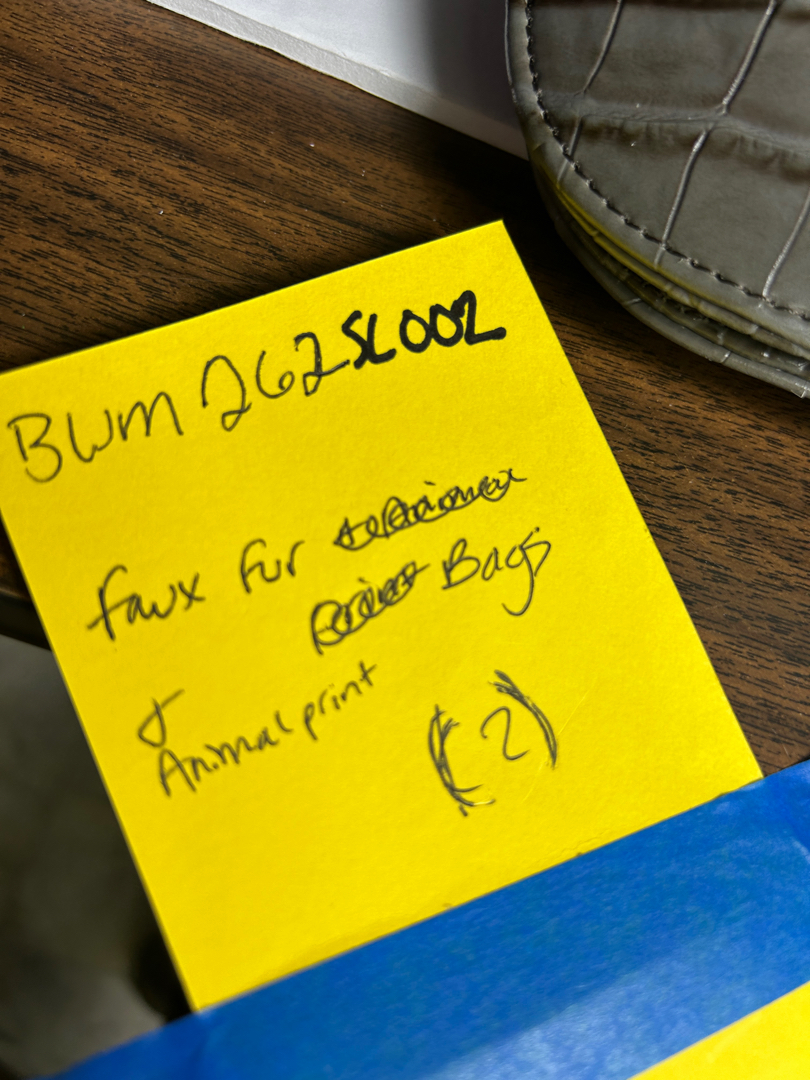 BWM262SL002
faux fur
Bags
&
Animal print
(2)